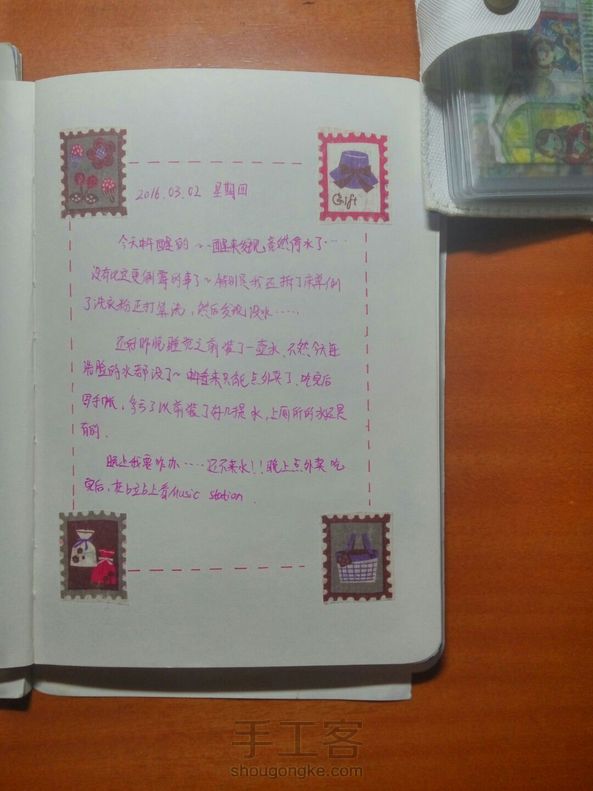 2016.03.02 星期四
Gift
今天醒的~~醒来发现,竟然停水了···
没有比这更倒霉的事了~特别是我还拆了床单倒
了洗衣粉正打算洗,然后发现没水·····
还好昨晚睡觉之前装了一壶水,不然今天连
洗脸的水都没了~ 看来只能点外卖了,吃完后
写手帐,多亏了以前装了好几提水,上厕所的水还是
有的.
晚上我要咋办····还不来水!!晚上点外卖 吃
完后,在b站上看Music Station.
手工客
shougongke.com